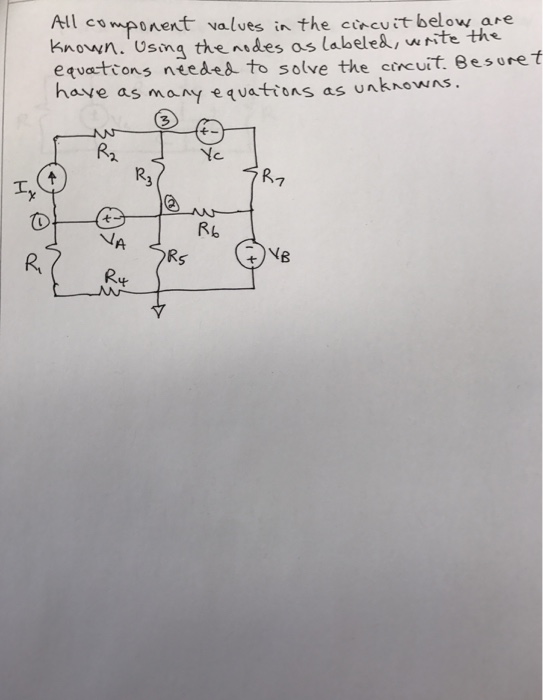 All component values in the circuit below are
known. Using the nodes as labeled, write the
equations needed to solve the circuit. Be sure t
have as many equations as unknowns.
3
+-
R2
Vc
R3
R7
Ix
1
+-
2
VA
R6
R1
R5
-
+
VB
R4